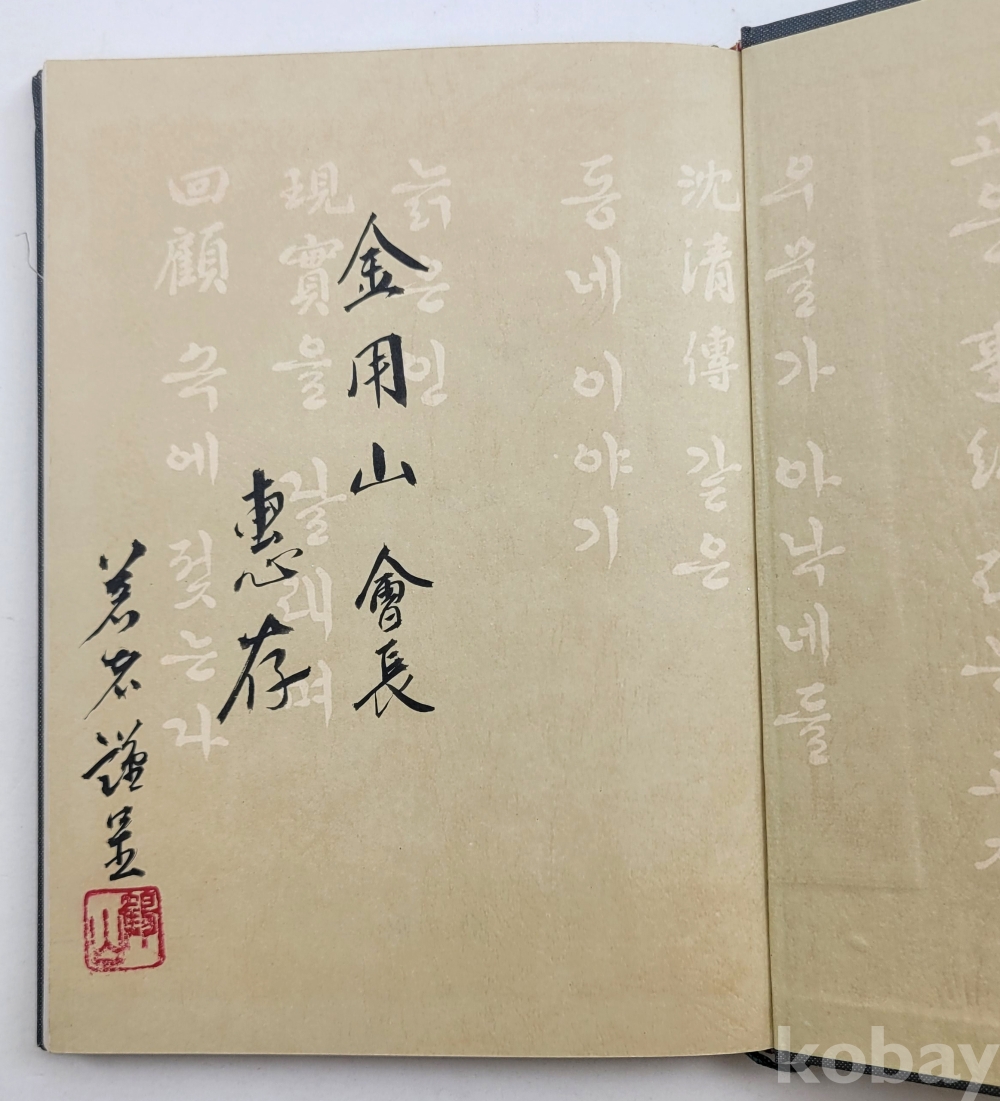 우물가 아낙네들
沈清傳 같은
동네 이야기
늙은인
現實을 달래며
回顧 속에 젖는다
金用山 會長
惠存
著者 謹呈
鶴山
kobay